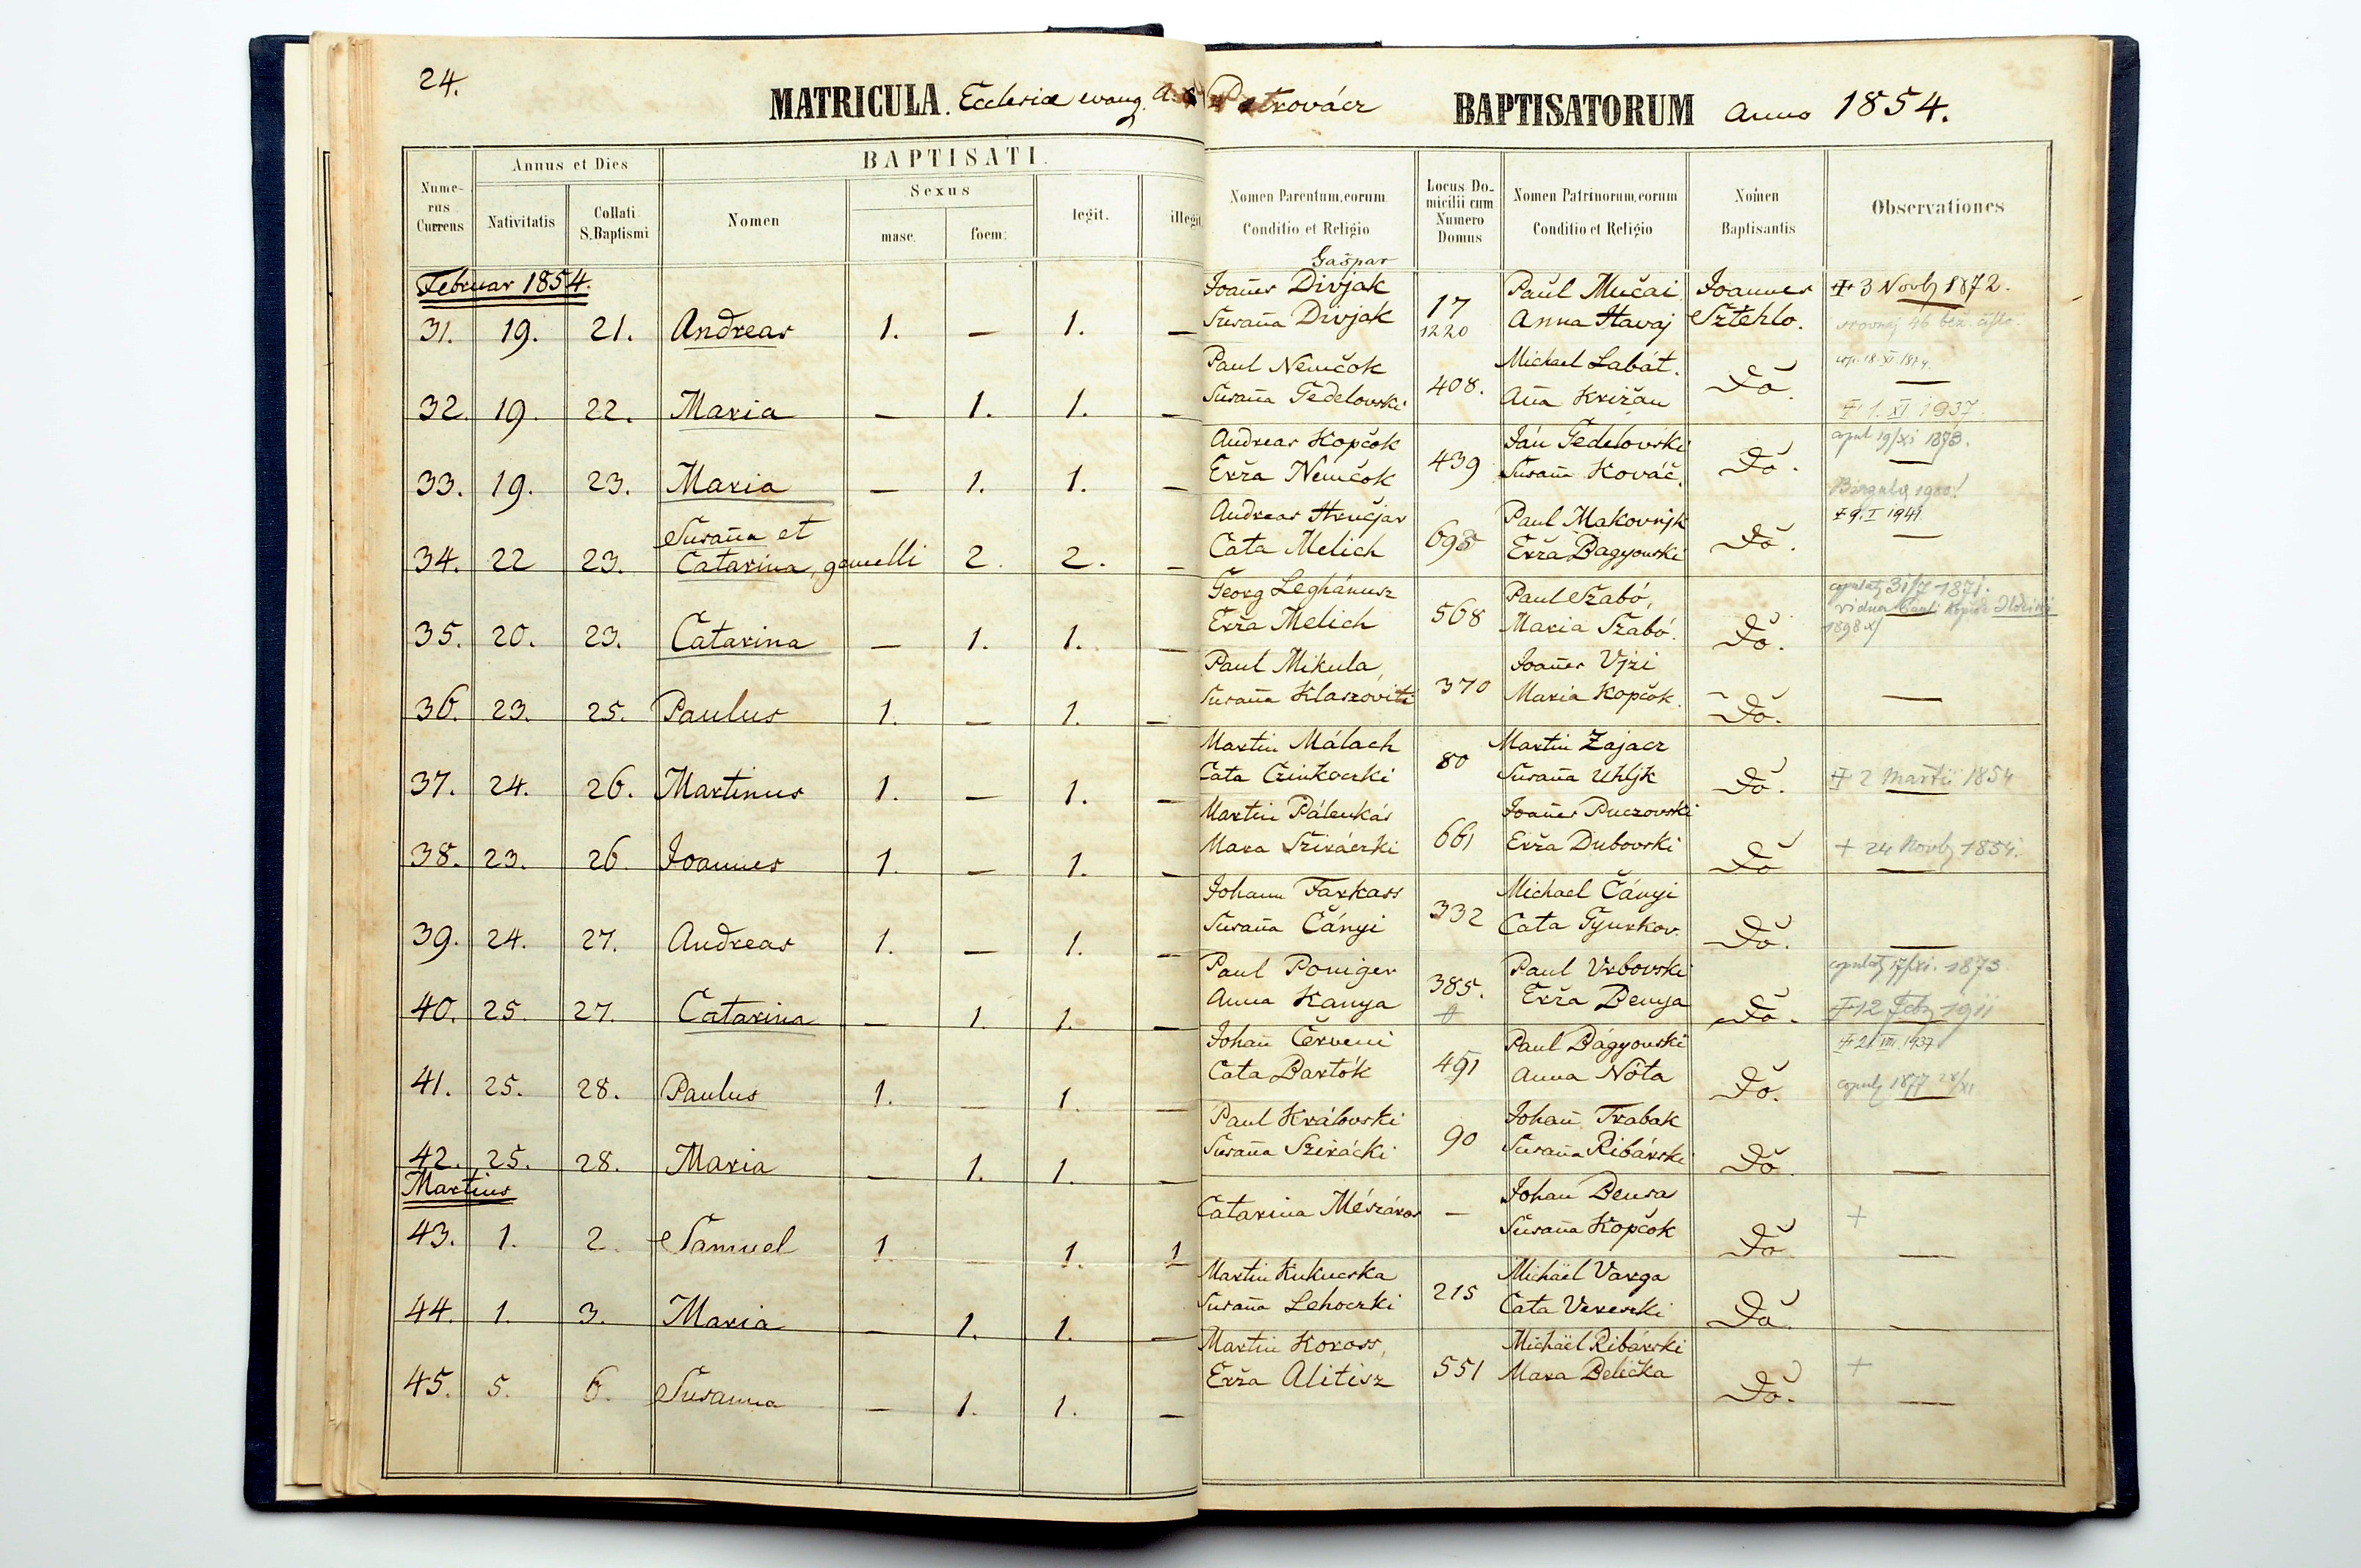 24.
MATRICULA. Ecclesiæ evang. A. Petrovácz BAPTISATORUM Anno 1854.
Numerus Currens
Annus et Dies
Nativitatis
Collati S. Baptismi
BAPTISATI.
Nomen
Sexus
masc.
foem:
legit.
illegit
Nomen Parentum, eorum Conditio et Religio
Locus Domicilii cum Numero Domus
Nomen Patrinorum, eorum Conditio et Religio
Nomen Baptisantis
Observationes
Februar 1854.
31. 19. 21. Andreas 1. — 1. —
Gašpar
Joañes Divjak
Susaña Divjak
17
1220
Paul Mučai
Anna Havaj
Joannes Sztehlo.
3 Novb 1872.
32. 19. 22. Maria — 1. 1. —
Paul Nemčok
Susaña Fedelovski
408.
Michael Labát.
Aña Križan
Dõ.
cop. 18. XI. 1874
1. XI 1937.
33. 19. 23. Maria — 1. 1. —
Andreas Kopčok
Erža Nemčok
439
Ján Fedelovski
Susaña Kováč.
Dõ.
copul 19/xi 1873.
34. 22 23. Susaña et Catarina, gemelli 2. 2. —
Andreas Hručjar
Cata Melich
698
Paul Makovnjk
Erža Bagyonski
Dõ.
9. I 1941.
35. 20. 23. Catarina — 1. 1. —
Georg Leghánusz
Erža Melich
568
Paul Szabó,
Maria Szabó.
Dõ.
copulat 31/7 1871.
vidua Pauli Kopčok
1898
36. 23. 25. Paulus 1. — 1. —
Paul Mikula,
Susaña Klaszovits
370
Joañes Vjzi
Maria Kopčok.
Dõ.
—
37. 24. 26. Martinus 1. — 1. —
Martin Málach
Cata Czinkoczki
80
Martin Zajacz
Susaña Uhljk
Dõ.
2 Martii 1854
38. 23. 26 Joannes 1. — 1. —
Martin Pálenkás
Mara Sziráczki
661
Joañes Puczovski
Erža Dubovski
Dõ
+ 24 Novb 1854.
39. 24. 27. Andreas 1. — 1. —
Johann Farkass
Susaña Čányi
332
Michael Čányi
Cata Gyurkov.
Dõ.
—
40. 25. 27. Catarina — 1. 1. —
Paul Poniger
Anna Kanya
385.
Paul Vrbovski
Erža Benya
Dõ.
copulat 17/xi. 1873.
12 Feb 1911
41. 25. 28. Paulus 1. — 1. —
Johañ Červeni
Cata Bartók
491
Paul Bágyonski
Anna Nóta
Dõ.
21. VIII. 1937
copul 1877 28/XI
42. 25. 28. Maria — 1. 1. —
Paul Královski
Susaña Szirácki
90
Johañ Trabak
Susaña Ribárski
Dõ
—
Martius
43. 1. 2. Samuel 1. — 1. 1
Catarina Mészáros
—
Johañ Bensa
Susaña Kopčok
Dõ
+
—
44. 1. 3. Maria — 1. 1. —
Martin Kukucska
Susaña Lehoczki
215
Michäel Varga
Cata Vereszki
Dõ.
—
45. 5. 6. Susanna — 1. 1. —
Martin Koross,
Erža Alitisz
551
Michäel Ribárski
Mara Belička
Dõ.
+
—